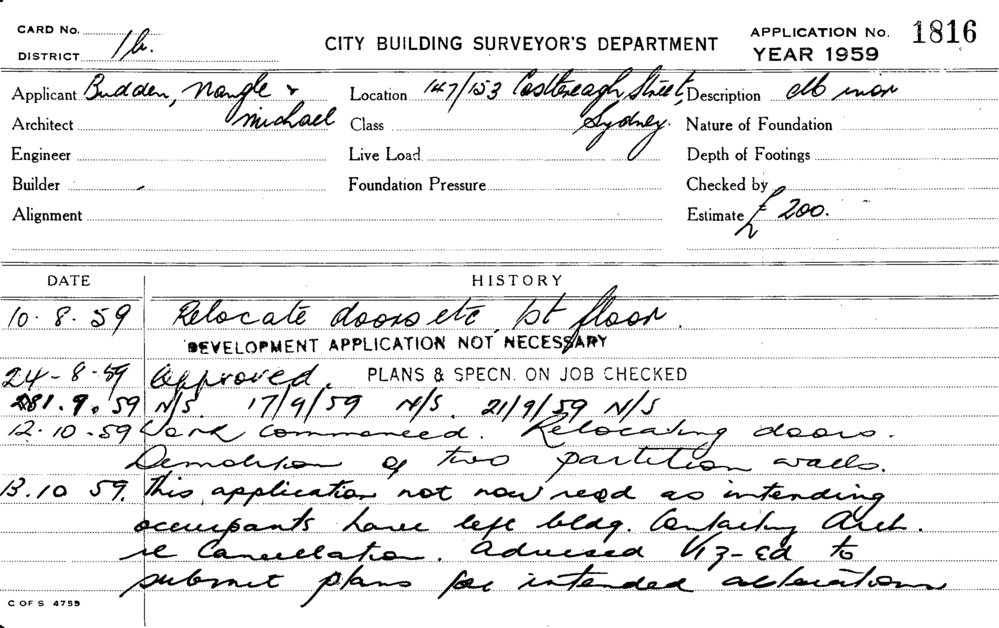 CARD No.
DISTRICT 1b.
CITY BUILDING SURVEYOR'S DEPARTMENT
APPLICATION No. 1816
YEAR 1959
Applicant Budden, Nangle & Michael
Location 147/153 Castlereagh Street, Sydney.
Description alb mor
Architect
Class
Nature of Foundation
Engineer
Live Load
Depth of Footings
Builder
Foundation Pressure
Checked by
Alignment
Estimate £ 200.
DATE HISTORY
10.8.59 Relocate doors etc 1st floor.
DEVELOPMENT APPLICATION NOT NECESSARY
24-8-59 Approved. PLANS & SPECN. ON JOB CHECKED
9.59 N/S. 17/9/59 N/S. 21/9/59 N/S
12.10.59 Work commenced. Relocating doors.
Demolition of two partition walls.
13.10 59. This application not now reqd as intending
occupants have left bldg. Contacting Arch.
re Cancellation. Advised to
submit plans for intended alterations
C OF S 4759